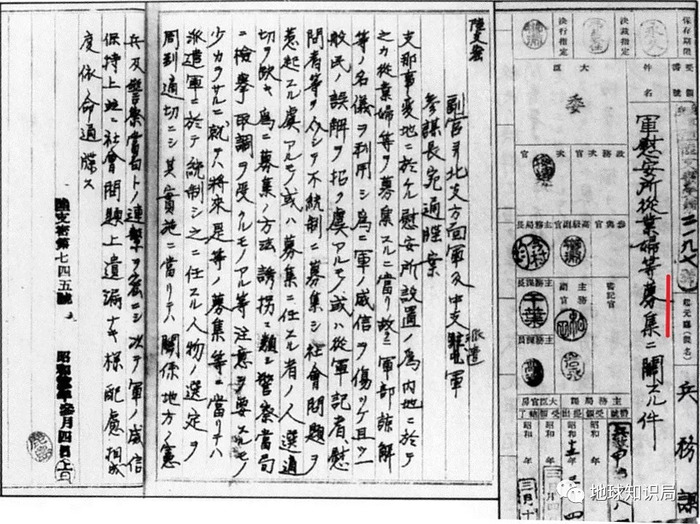 保存期限
永久
決裁指定
決行指定
件名
軍慰安所從業婦等募集ニ關スル件
兵務課
大臣
委
政務官
次官
參與官
高級副官
主務局長
主務課長
千葉
主務副官
主務課員
陸支密
副官ヨリ北支方面軍及中支派遣軍
參謀長宛通牒案
支那事變地ニ於ケル慰安所設置ノ爲内地ニ於テ
之カ從業婦等ヲ募集スルニ當リ故ラニ軍部諒解
等ノ名儀ヲ利用シ爲ニ軍ノ威信ヲ傷ツケ且ツ一
般民ノ誤解ヲ招ク虞アルモノ或ハ從軍記者慰
問者等ヲ介シテ不統制ニ募集シ社會問題ヲ
惹起スル虞アルモノ或ハ募集ニ任スル者ノ人選適
切ヲ欠キ爲ニ募集ノ方法誘拐ニ類シ警察當局
ニ檢擧取調ヲ受クルモノアル等注意ヲ要スルモノ
少カラサルニ就テハ將來是等ノ募集等ニ當リテハ
派遣軍ニ於テ統制シ之ニ任スル人物ノ選定ヲ
周到適切ニシ其實施ニ當リテハ關係地方ノ憲
兵及警察當局トノ連繫ヲ密ニシ次テ軍ノ威信
保持上並ニ社會問題上遺漏ナキ樣配慮相成
度依命通牒ス
陸支密第七四五號
昭和拾參年參月四日
地球知识局